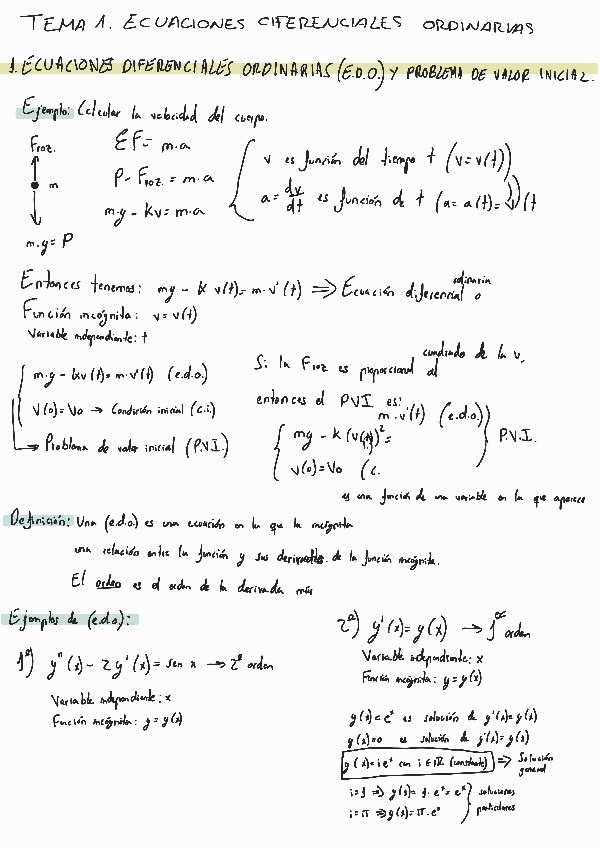 TEMA 1. ECUACIONES CIFERENCIALES ORDINARIAS
1. ECUACIONES DIFERENCIALES ORDINARIAS (E.D.O.) Y PROBLEMA DE VALOR INICIAL.
Ejemplo: Calcular la velocidad del cuerpo.
Froz.
m
m.g = P
ΣF = m.a
P - Froz. = m.a
m.g - kv = m.a
v es función del tiempo t (v = v(t))
a = dv/dt es función de t (a = a(t) = v'(t))
Entonces tenemos: mg - k v(t) = m.v'(t) ⇒ Ecuación diferencial ordinaria
Función incógnita: v = v(t)
Variable independiente: t
m.g - kv(t) = m.v'(t) (e.d.o.)
v(0) = Vo → Condición inicial (c.i.)
→ Problema de valor inicial (P.V.I.)
Si la Froz es proporcional al cuadrado de la v,
entonces el P.V.I. es:
mg - k (v(t))² = m.v'(t) (e.d.o.)
v(0) = Vo (c.
P.V.I.
es una función de una variable en la que aparece
Definición: Una (e.d.o.) es una ecuación en la que la incógnita
una relación entre la función y sus derivadas de la función incógnita.
El orden es el orden de la derivada más
Ejemplos de (e.d.o.):
1º) y''(x) - 2y'(x) = sen x → 2º orden
Variable independiente: x
Función incógnita: y = y(x)
2º) y'(x) = y(x) → 1er orden
Variable independiente: x
Función incógnita: y = y(x)
y(x) = eˣ es solución de y'(x) = y(x)
y(x) = 0 es solución de y'(x) = y(x)
y(x) = i eˣ con i ∈ ℝ (constante) ⇒ Solución general
i = 1 ⇒ y(x) = 1.eˣ = eˣ
i = π ⇒ y(x) = π.eˣ
soluciones
particulares